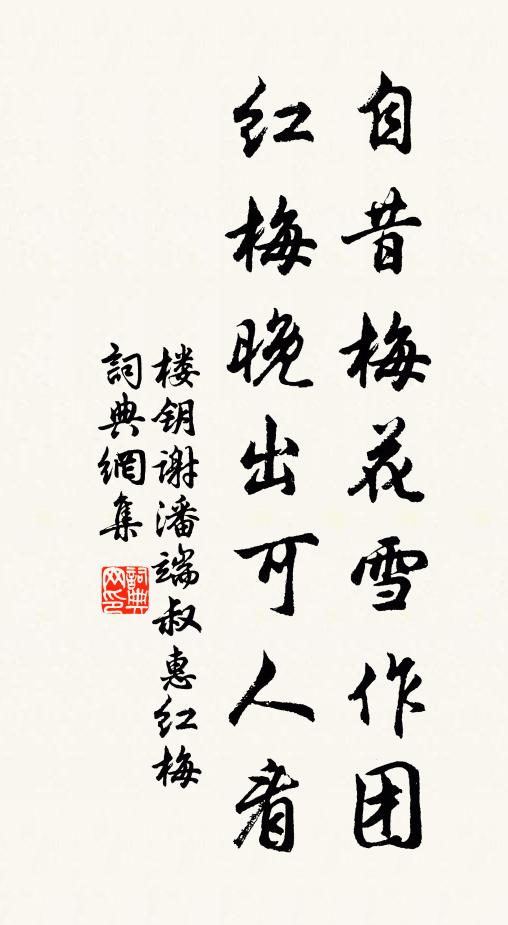 自昔梅花雪作团
红梅晚出可人看
楼钥谢潘端叔惠红梅
詞典網集
詞典网印